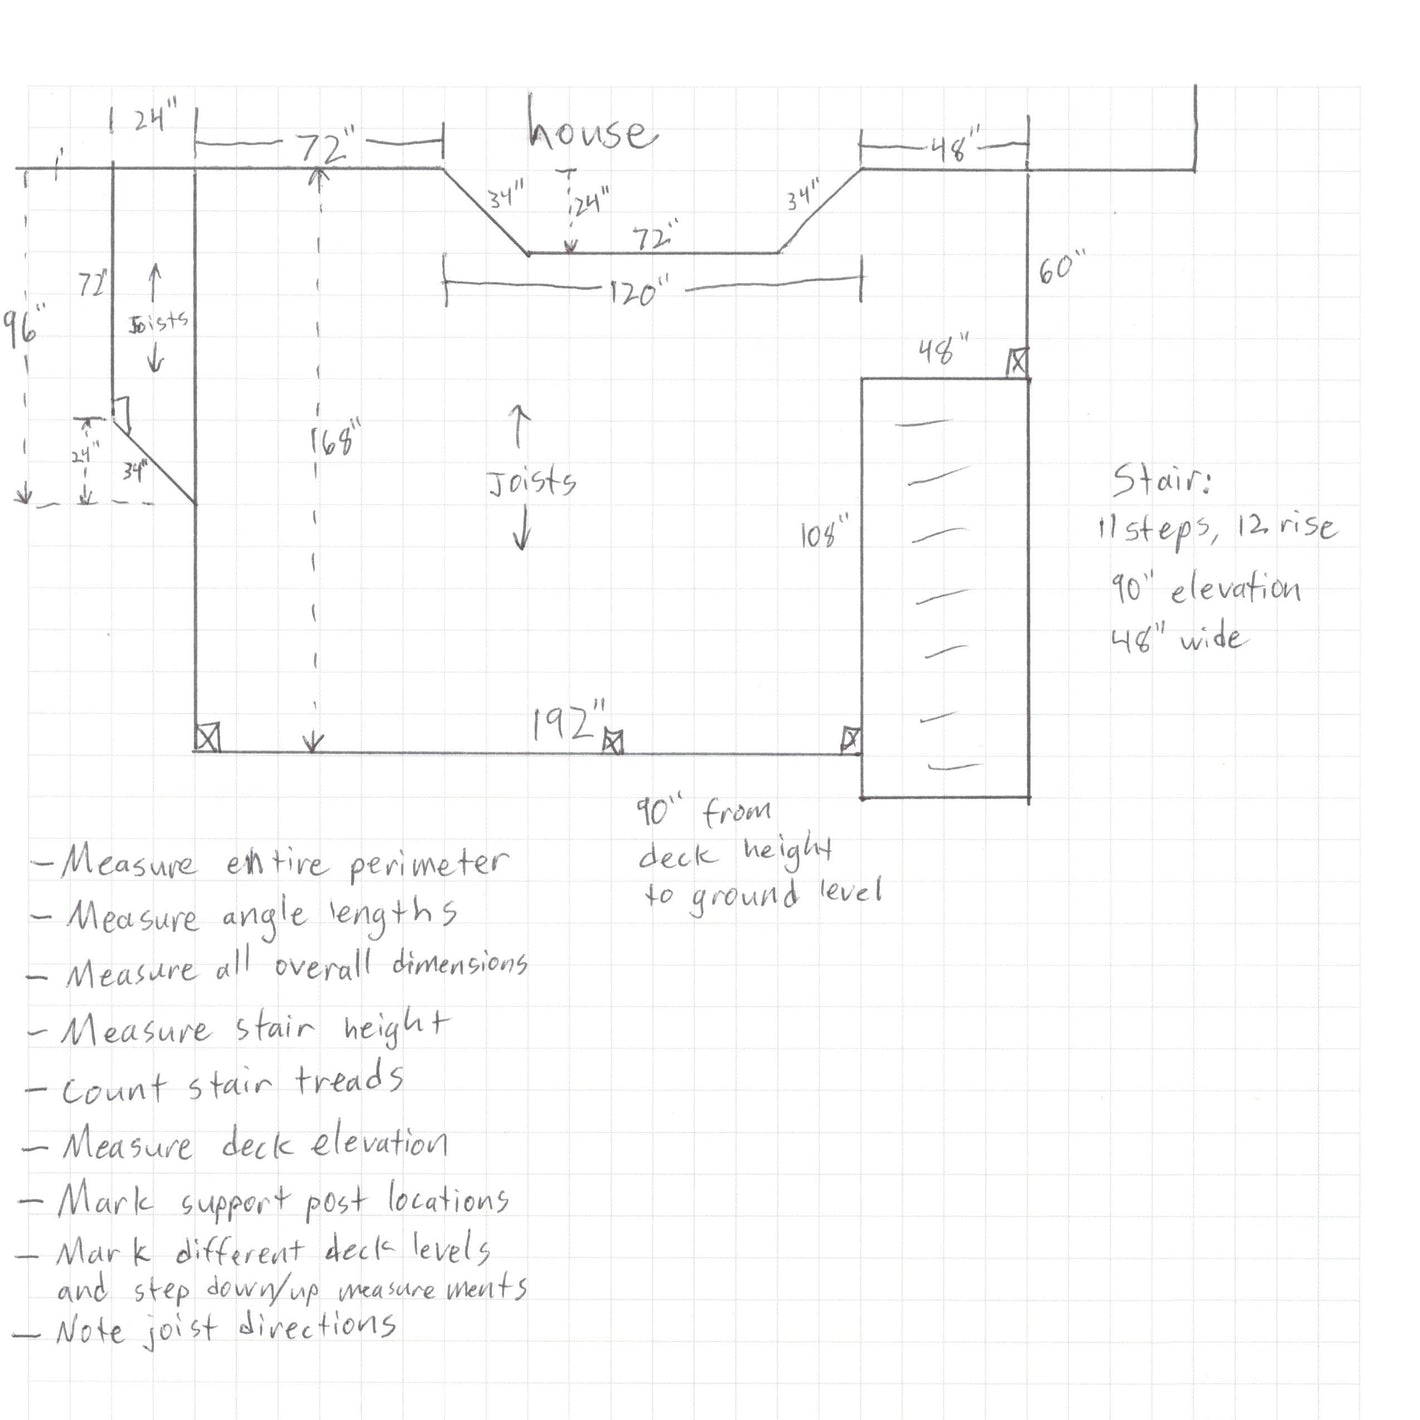 24"
72"
house
48"
34"
24"
34"
72"
120"
60"
72"
96"
Joists
48"
24"
34"
168"
Joists
108"
Stair:
11 steps, 12 rise
90" elevation
48" wide
192"
90" from
deck height
to ground level
- Measure entire perimeter
- Measure angle lengths
- Measure all overall dimensions
- Measure stair height
- Count stair treads
- Measure deck elevation
- Mark support post locations
- Mark different deck levels
and step down/up measurements
- Note joist directions